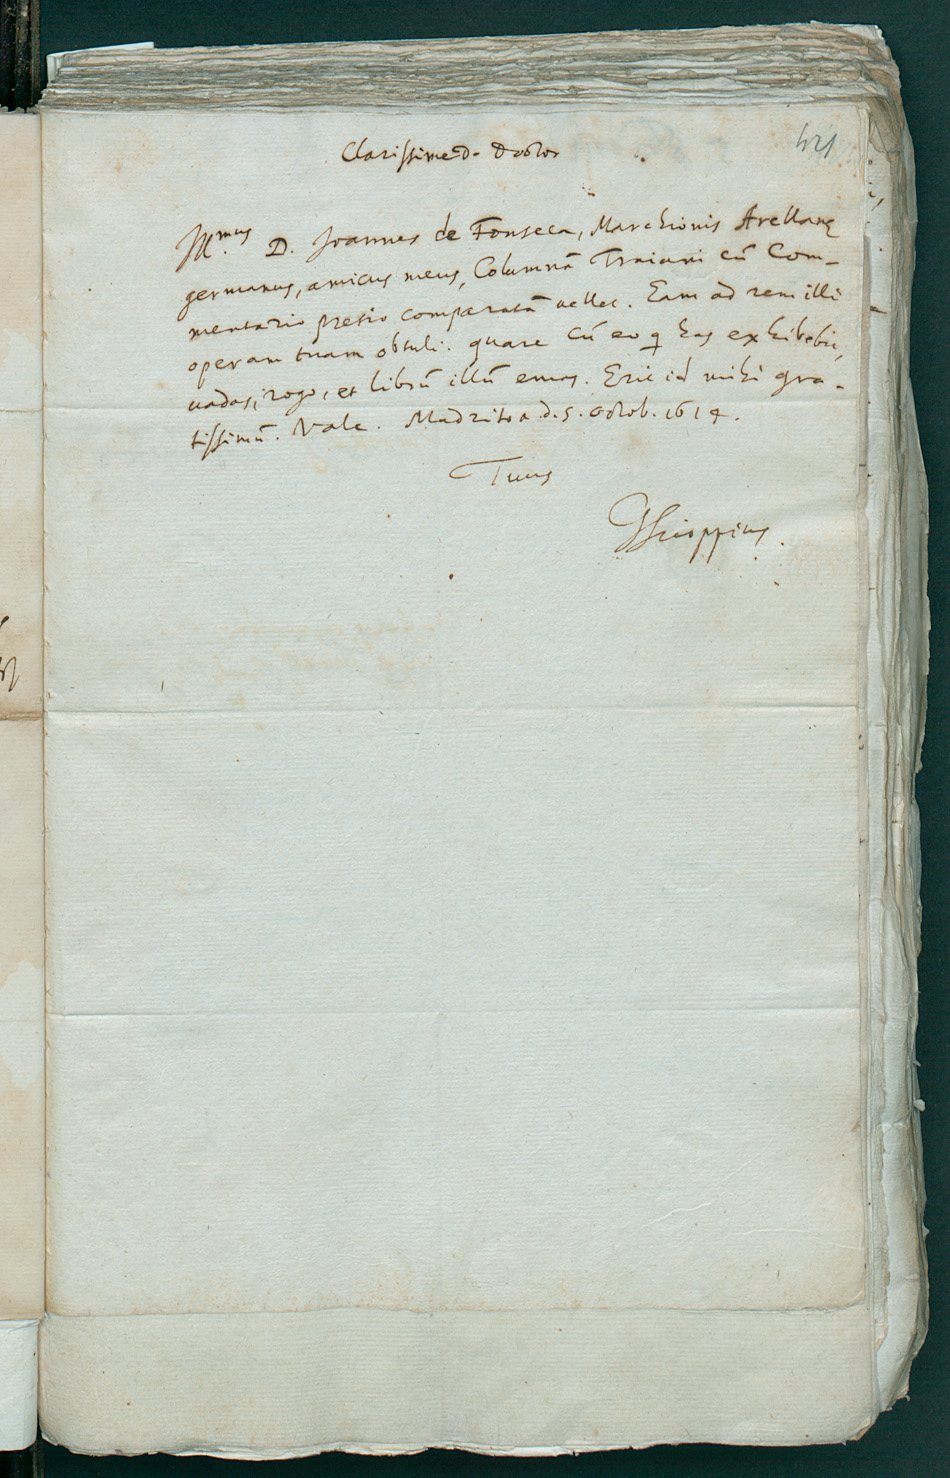 421
Clarissime D. Doctor
Ill.mus D. Joannes de Fonseca, Marchionis Arellanę
germanus, amicus meus, Columnā Traiani cū Com-
mentario pretio comparatā vellet. Eam ad rem illi
operam tuam obtuli. quare cū eo q has exhibebit,
vadas, rogo, et librū illū emas. Erit id mihi gra-
tissimū. Vale. Madriti a. d. 5. Octob. 1614.
Tuus
GScioppius.